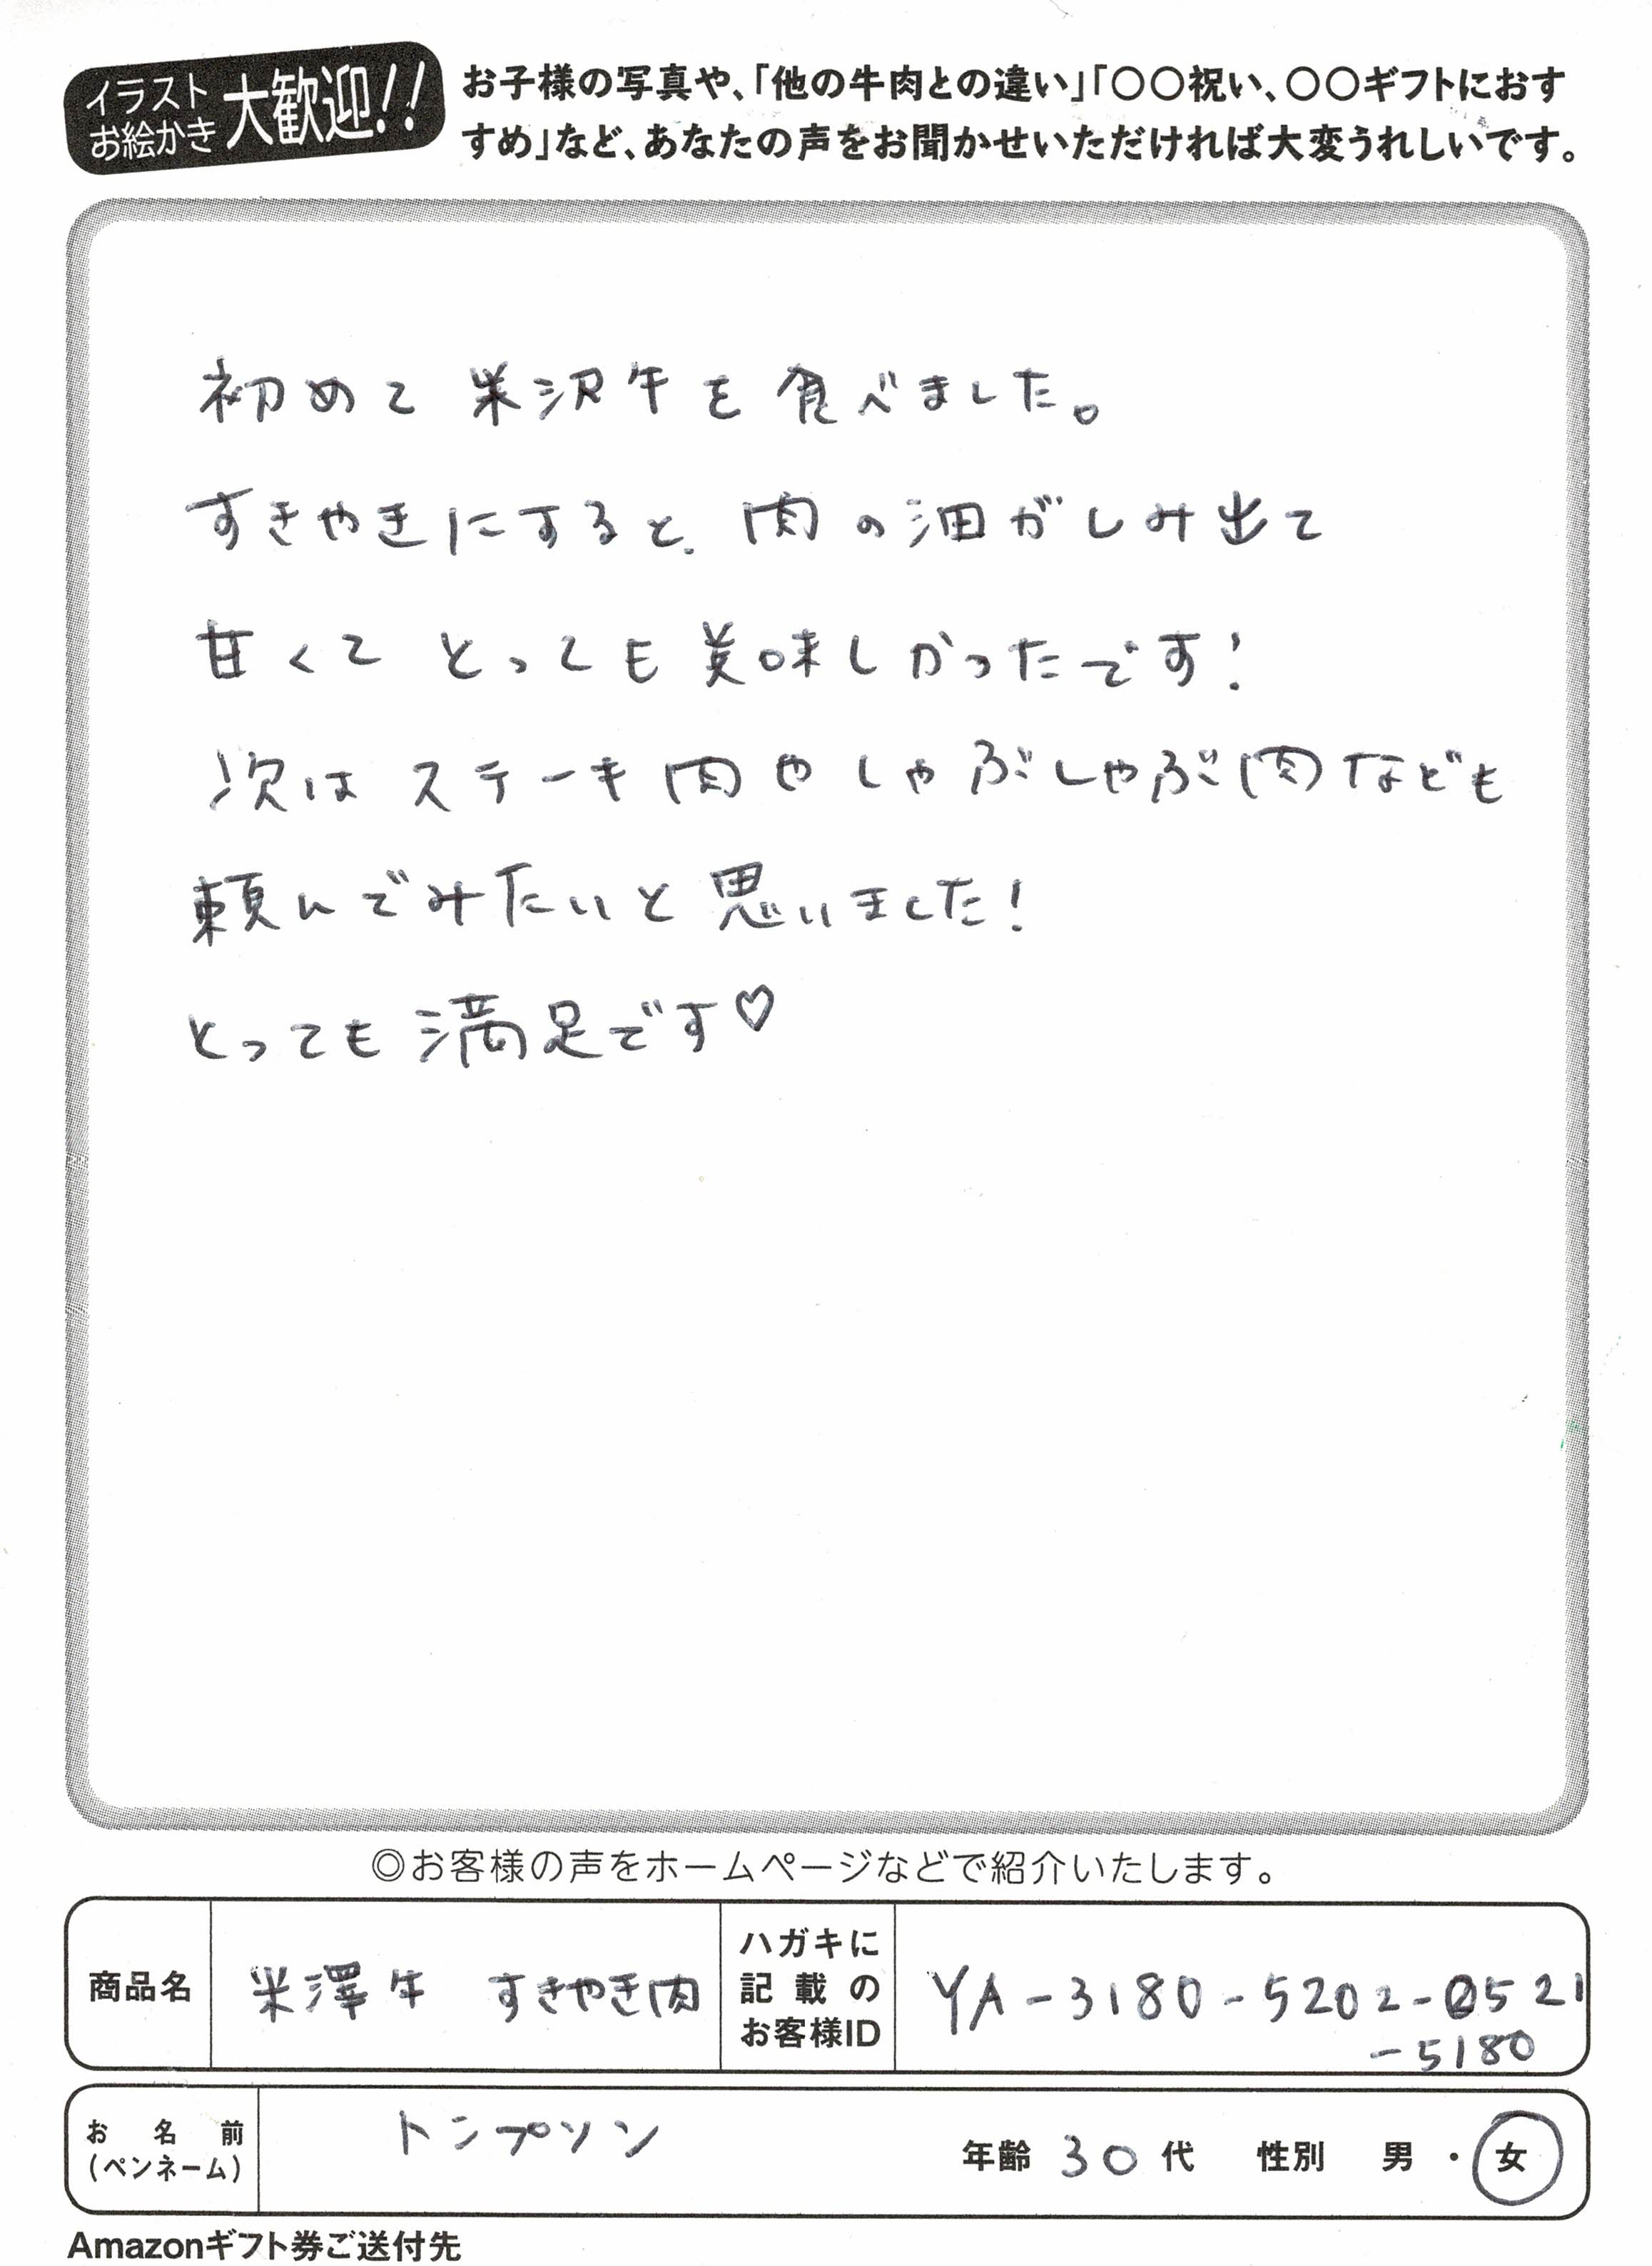 イラスト
お絵かき
大歓迎!!
お子様の写真や、「他の牛肉との違い」「〇〇祝い、〇〇ギフトにおす
すめ」など、あなたの声をお聞かせいただければ大変うれしいです。
初めて 米沢牛を食べました。
すきやきにすると、肉の油がしみ出て
甘くて とっても美味しかったです!
次は ステーキ肉やしゃぶしゃぶ肉なども
頼んでみたいと思いました!
とっても満足です♡
◎お客様の声をホームページなどで紹介いたします。
商品名
米澤牛 すきやき肉
ハガキに
記載の
お客様ID
YA-3180-5202-0521
-5180
お名前
(ペンネーム)
トンプソン
年齢 30代 性別 男・女
Amazonギフト券ご送付先